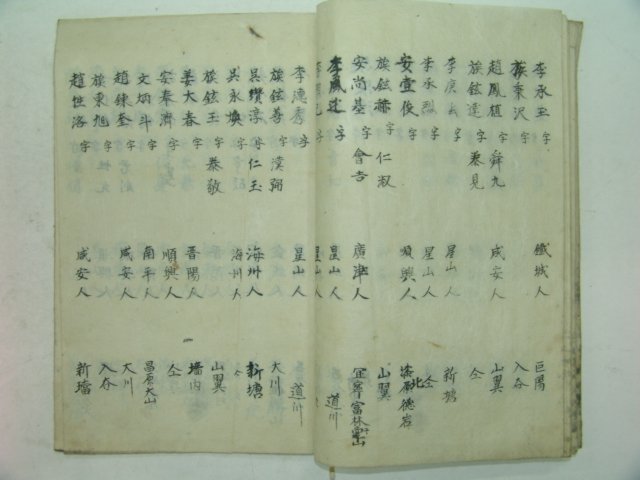 李承玉 字 鐵城人 巨陽
族秉沢 字 入谷
趙鳳植 字 舜九 咸安人 山翼
族鉉達 字 兼見 仝
李庚 字 星山人 新塘
李承烈 字 星山人 仝
安壹俊 字 順興人 漆原德岩
族鉉赫 字 仁淑 山翼
安尚基 字 會吉 廣津人 宜寧富林
李鳳 字 星山人 道川
李 字 星山人
李德秀 字 星山人 道川
族鉉善 字 漢弼 大川
吳纘淳 字 仁玉 海州人 新塘
吳永煥 字 海州人 仝
族鉉玉 字 恭敬 山翼
姜大春 字 晋陽人 墻內
安奉濟 字 順興人 仝
文炳斗 字 南平人 昌原大山
趙鍊奎 字 咸安人 大川
族東旭 字 入谷
趙性洛 字 咸安人 新塘